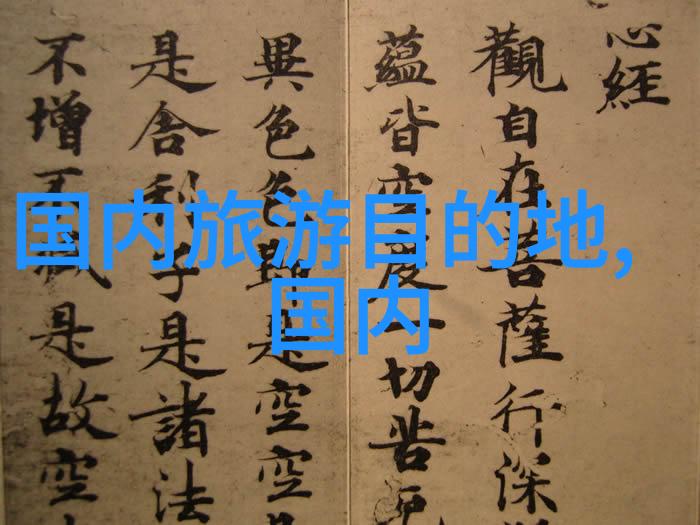 国内旅游目的地,
国内
心經
觀自在菩薩行深
蘊皆空度一切苦厄
異色色即是空空
是舍利子是諸法
不增不減是故空